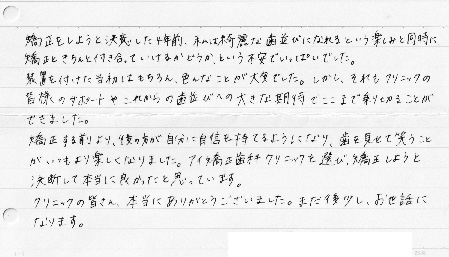 矯正をしようと決意した4年前、私は綺麗な歯並びになれるという楽しみと同時に
矯正ときちんと付き合っていけるかどうか、という不安でいっぱいでした。
装置を付けた当初はもちろん、色んなことが大変でした。しかし、それもクリニックの
皆様のサポートやこれからの歯並びへの大きな期待でここまで乗りきることが
できました。
矯正する前より、後の方が自分に自信を持てるようになり、歯を見せて笑うこと
がいつもより楽しくなりました。アイタ矯正歯科クリニックを選び、矯正しようと
決断して本当に良かったと思っています。
クリニックの皆さん、本当にありがとうございました。まだ後少し、お世話に
なります。